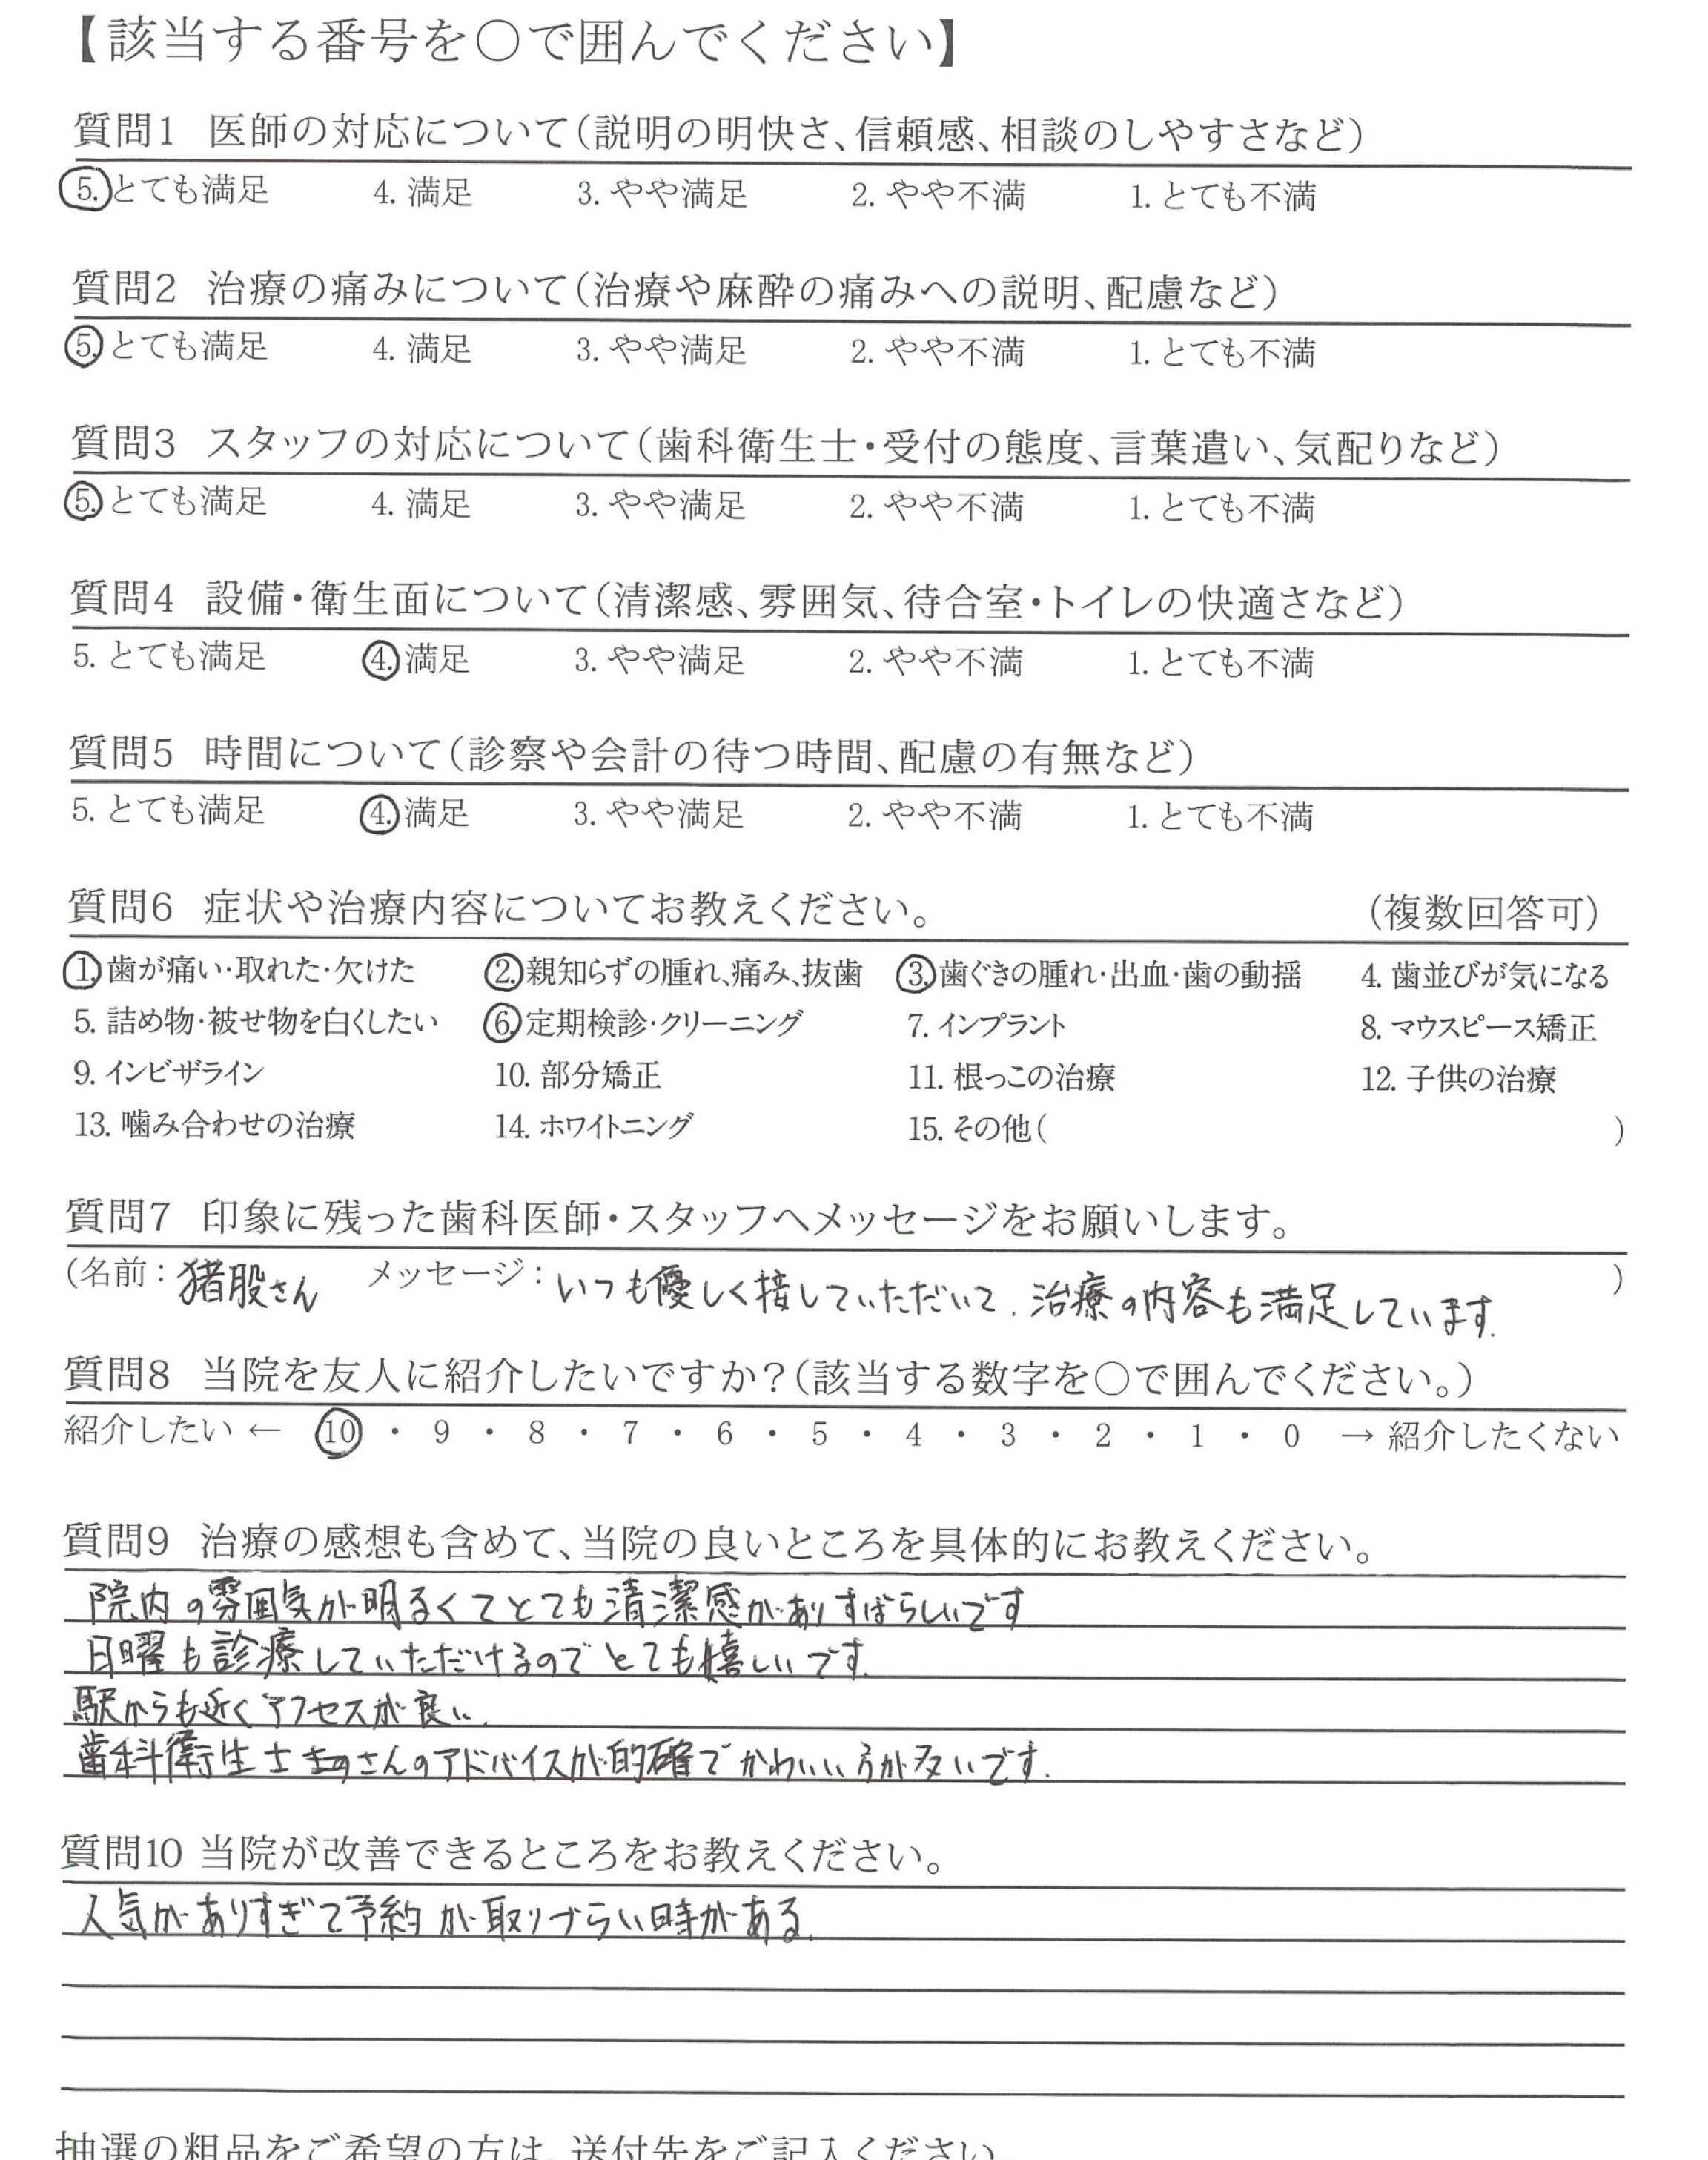 【該当する番号を〇で囲んでください】
質問1 医師の対応について(説明の明快さ、信頼感、相談のしやすさなど)
5. とても満足 4. 満足 3. やや満足 2. やや不満 1. とても不満
質問2 治療の痛みについて(治療や麻酔の痛みへの説明、配慮など)
5. とても満足 4. 満足 3. やや満足 2. やや不満 1. とても不満
質問3 スタッフの対応について(歯科衛生士・受付の態度、言葉遣い、気配りなど)
5. とても満足 4. 満足 3. やや満足 2. やや不満 1. とても不満
質問4 設備・衛生面について(清潔感、雰囲気、待合室・トイレの快適さなど)
5. とても満足 4. 満足 3. やや満足 2. やや不満 1. とても不満
質問5 時間について(診察や会計の待つ時間、配慮の有無など)
5. とても満足 4. 満足 3. やや満足 2. やや不満 1. とても不満
質問6 症状や治療内容についてお教えください。 (複数回答可)
1. 歯が痛い・取れた・欠けた 2. 親知らずの腫れ、痛み、抜歯 3. 歯ぐきの腫れ・出血・歯の動揺 4. 歯並びが気になる
5. 詰め物・被せ物を白くしたい 6. 定期検診・クリーニング 7. インプラント 8. マウスピース矯正
9. インビザライン 10. 部分矯正 11. 根っこの治療 12. 子供の治療
13. 噛み合わせの治療 14. ホワイトニング 15. その他( )
質問7 印象に残った歯科医師・スタッフへメッセージをお願いします。
(名前: 猪股さん メッセージ: いつも優しく接していただいて、治療の内容も満足しています。)
質問8 当院を友人に紹介したいですか?(該当する数字を〇で囲んでください。)
紹介したい ← 10 ・ 9 ・ 8 ・ 7 ・ 6 ・ 5 ・ 4 ・ 3 ・ 2 ・ 1 ・ 0 → 紹介したくない
質問9 治療の感想も含めて、当院の良いところを具体的にお教えください。
院内の雰囲気が明るくてとても清潔感がありすばらしいです
日曜も診療していただけるのでとても嬉しいです。
駅からも近くアクセスが良い。
歯科衛生士さんのアドバイスが的確でかわいい方が多いです。
質問10 当院が改善できるところをお教えください。
人気がありすぎて予約が取りづらい時がある。
抽選の粗品をご希望の方は、送付先をご記入ください。